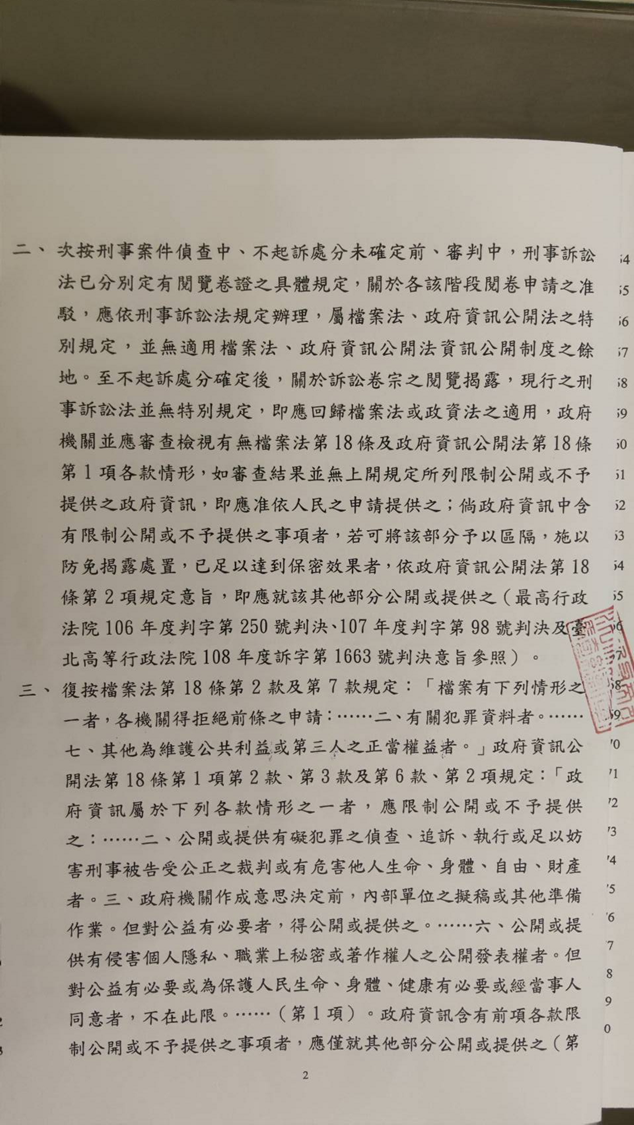 二、次按刑事案件偵查中、不起訴處分未確定前、審判中，刑事訴訟
法已分別定有閱覽卷證之具體規定，關於各該階段閱卷申請之准
駁，應依刑事訴訟法規定辦理，屬檔案法、政府資訊公開法之特
別規定，並無適用檔案法、政府資訊公開法資訊公開制度之餘
地。至不起訴處分確定後，關於訴訟卷宗之閱覽揭露，現行之刑
事訴訟法並無特別規定，即應回歸檔案法或政資法之適用，政府
機關並應審查檢視有無檔案法第18條及政府資訊公開法第18條
第1項各款情形，如審查結果並無上開規定所列限制公開或不予
提供之政府資訊，即應准依人民之申請提供之；倘政府資訊中含
有限制公開或不予提供之事項者，若可將該部分予以區隔，施以
防免揭露處置，已足以達到保密效果者，依政府資訊公開法第18
條第2項規定意旨，即應就該其他部分公開或提供之（最高行政
法院106年度判字第250號判決、107年度判字第98號判決及臺
北高等行政法院108年度訴字第1663號判決意旨參照）。
三、復按檔案法第18條第2款及第7款規定：「檔案有下列情形之
一者，各機關得拒絕前條之申請：……二、有關犯罪資料者。……
七、其他為維護公共利益或第三人之正當權益者。」政府資訊公
開法第18條第1項第2款、第3款及第6款、第2項規定：「政
府資訊屬於下列各款情形之一者，應限制公開或不予提供
之：……二、公開或提供有礙犯罪之偵查、追訴、執行或足以妨
害刑事被告受公正之裁判或有危害他人生命、身體、自由、財產
者。三、政府機關作成意思決定前，內部單位之擬稿或其他準備
作業。但對公益有必要者，得公開或提供之。……六、公開或提
供有侵害個人隱私、職業上秘密或著作權人之公開發表權者。但
對公益有必要或為保護人民生命、身體、健康有必要或經當事人
同意者，不在此限。……（第1項）。政府資訊含有前項各款限
制公開或不予提供之事項者，應僅就其他部分公開或提供之（第
2